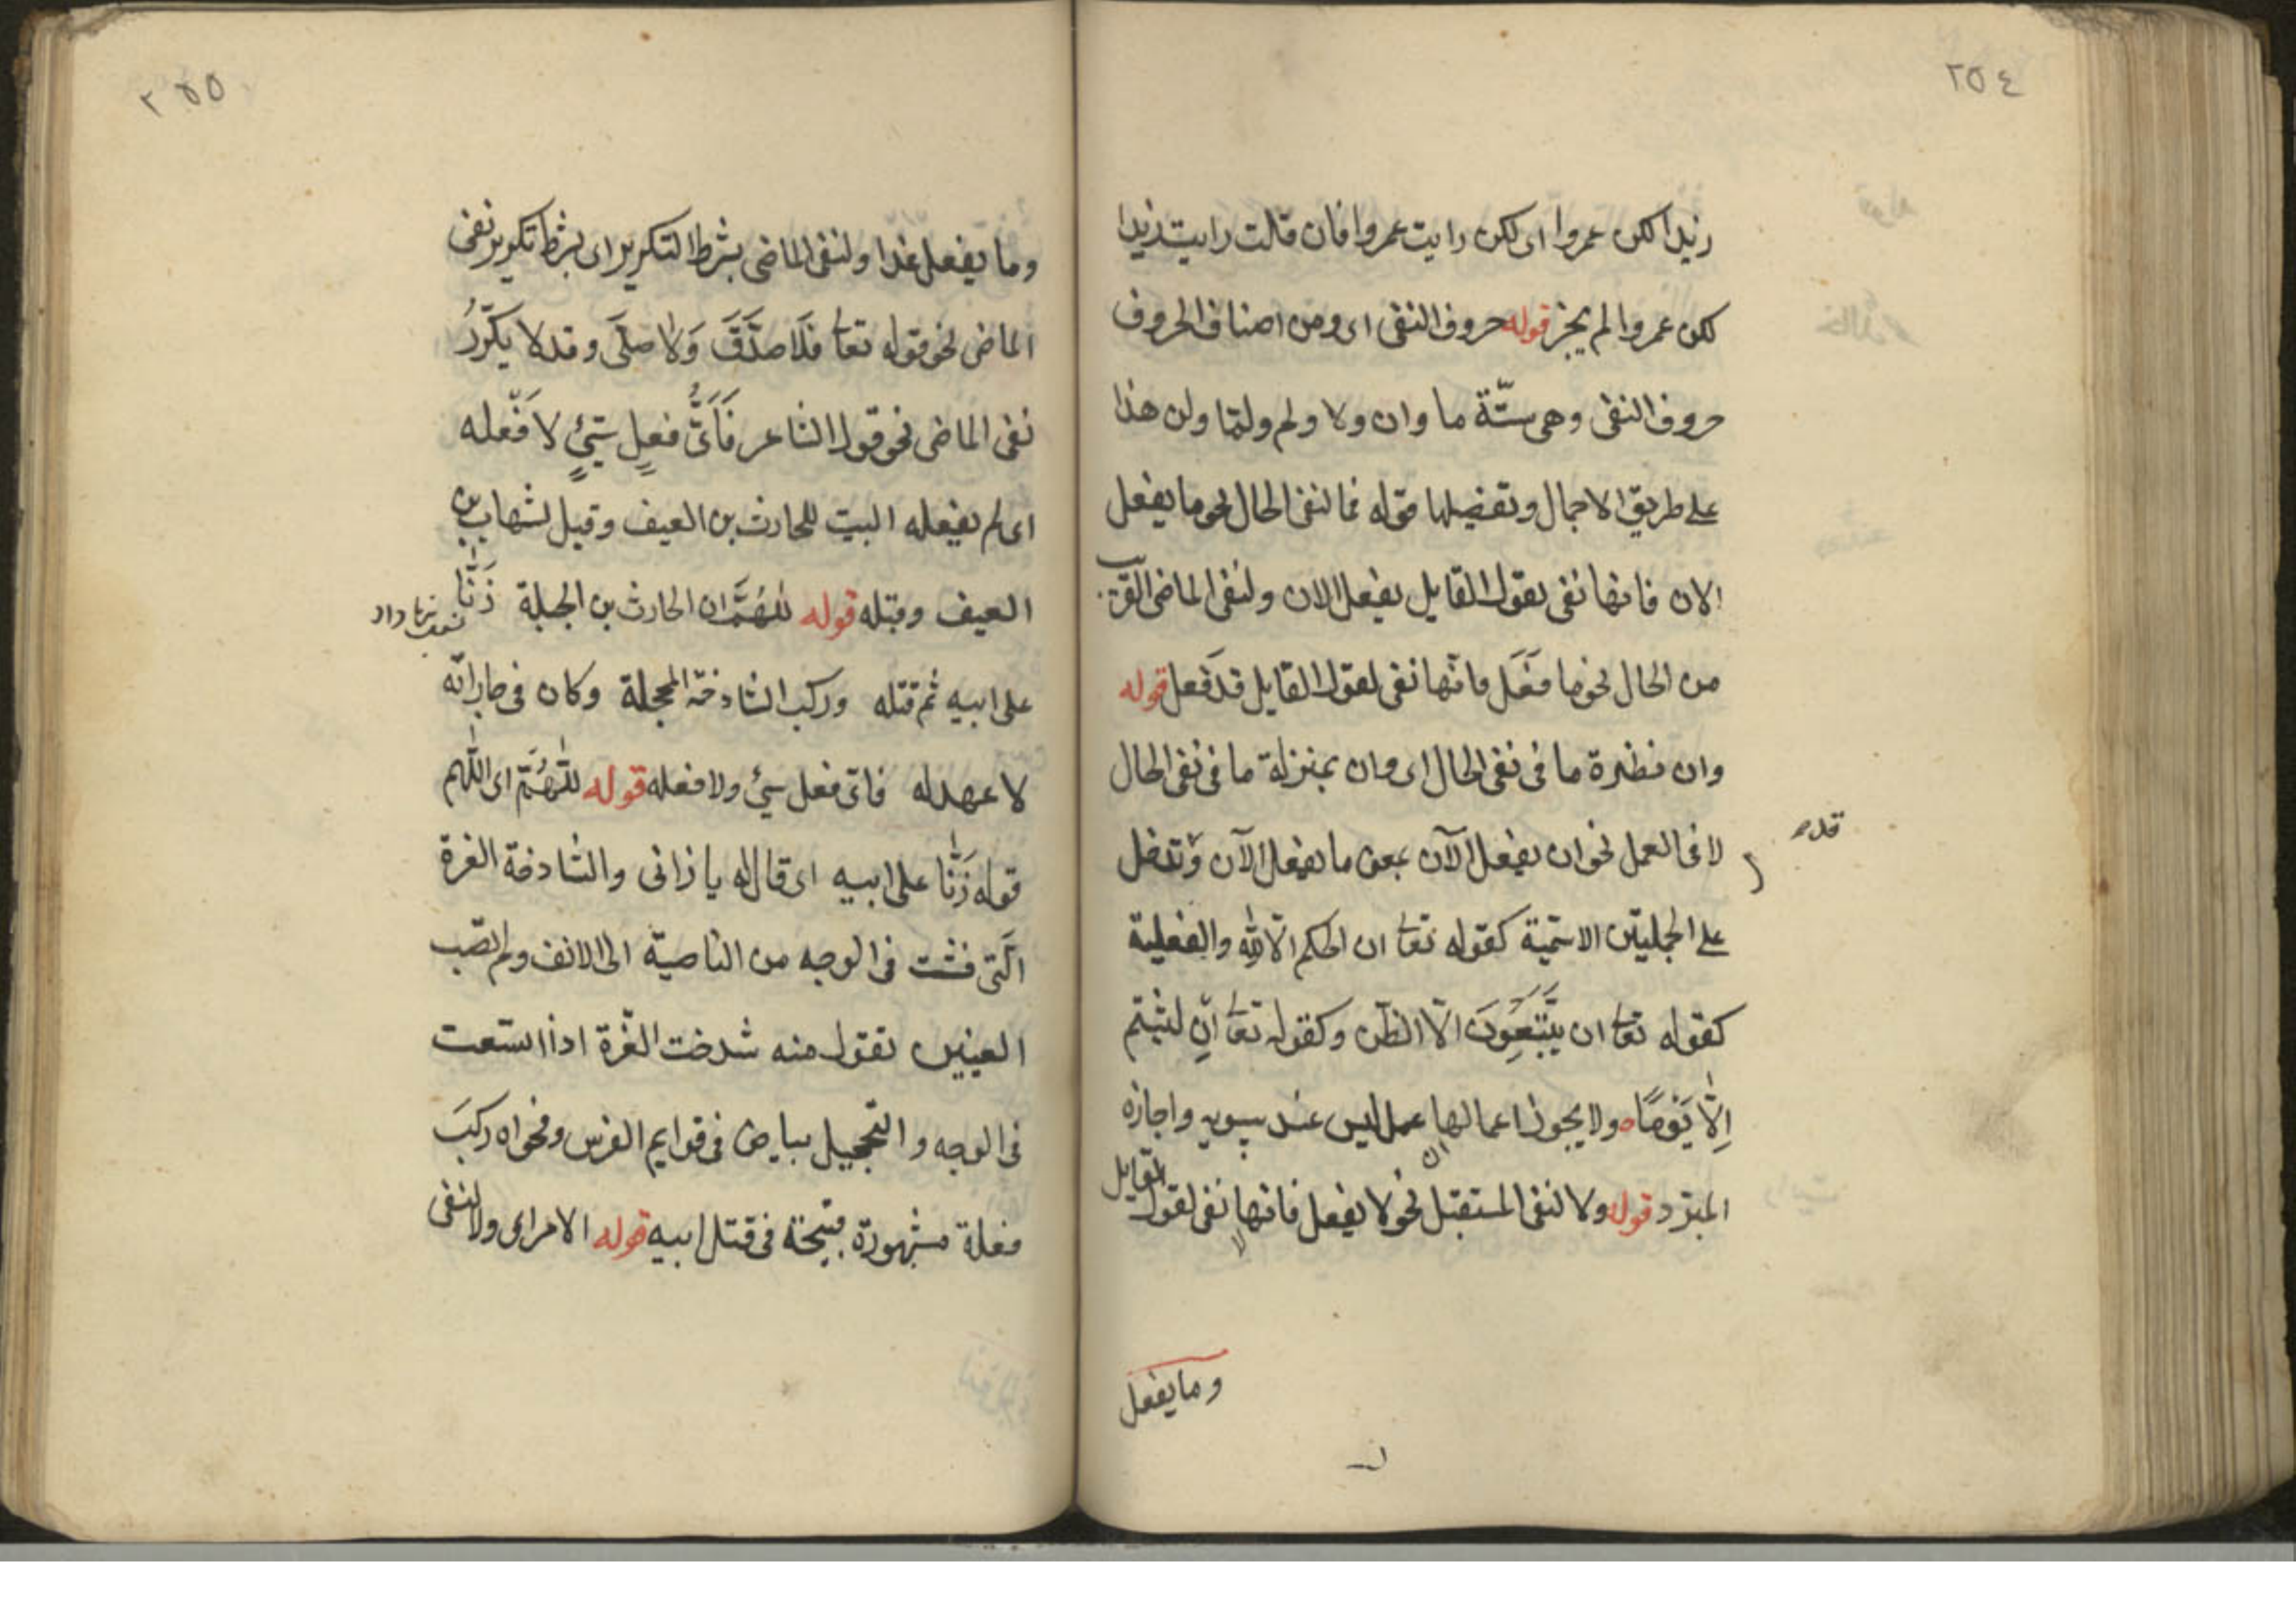 ٢٥٤
زيدا لكن عمروا اى لكن رايت عمروا فان قلت رايت زيدا
لكن عمروا لم يجز قوله حروف النفى اى ومن اصناف الحروف
حروف النفى وهى ستّة ما وان ولا ولم ولمّا ولن هذا
على طريق الاجمال وتفصيلها قوله فما لنفى الحال نحو ما يفعل
الان فانها نفى بقول القايل يفعل الان ولنفى الماضى القريب
من الحال نحو ما فَعَل فانّها نفى لقول القايل قد فعل قوله
وان نظيرة ما فى نفى الحال اى وان بمنزلة ما فى نفى الحال
لا فى العمل نحو ان يفعل الآن بمعنى ما يفعل الآن وتدخل
على الجملتين الاسميّة كقوله تعا ان الحكم الّا لله والفعلية
كقوله تعا ان يَتَّبِعُونَ الّا الظن وكقوله تعا ان لبثتم
اِلَّا يَوْمًا ولا يجوز اعمالها عمل ليس عند سيبويه واجازه
ان
المبرّد قوله ولا لنفى المستقبل نحو لا يفعل فانها نفى لقول القايل
لا
وما يفعل
٢٥٥
وما يفعل غدا ولنفى الماضى بشرط التكرير اى بشرط تكرير نفى
الماضى نحو قوله تعا فَلَا صَدَّقَ وَلَا صلَّى وقد لا يكرَّرُ
نفى الماضى نحو قول الشاعر فَاَىُّ فعلٍ سَيّئٍ لا فَعَله
اى لم يفعله البيت للحارث بن العيف وقيل لشهاب بن
العيف وقبله قوله للهُمَّ ان الحارث بن الجبلة زَنَّا
على ابيه ثم قتله وركب الشادخة المحجلة وكان فى جاراته
لا عهد له فاىّ فعل سيئ ولا فعله قوله للّهُمّ اى اللّهم
قوله زَنَّا على ابيه اى قال له يا زانى والشادخة الغرة
الّتى فشت فى الوجه من الناصية الى الانف ولم تصب
العينين تقول منه شدخت الغُرّة اذا اتسعت
فى الوجه والتحجيل بياض فى قوايم الفرس وفحواه ركبَ
فعلة مشهورة قبيحة فى قتل ابيه قوله الامر اى ولا لنفى